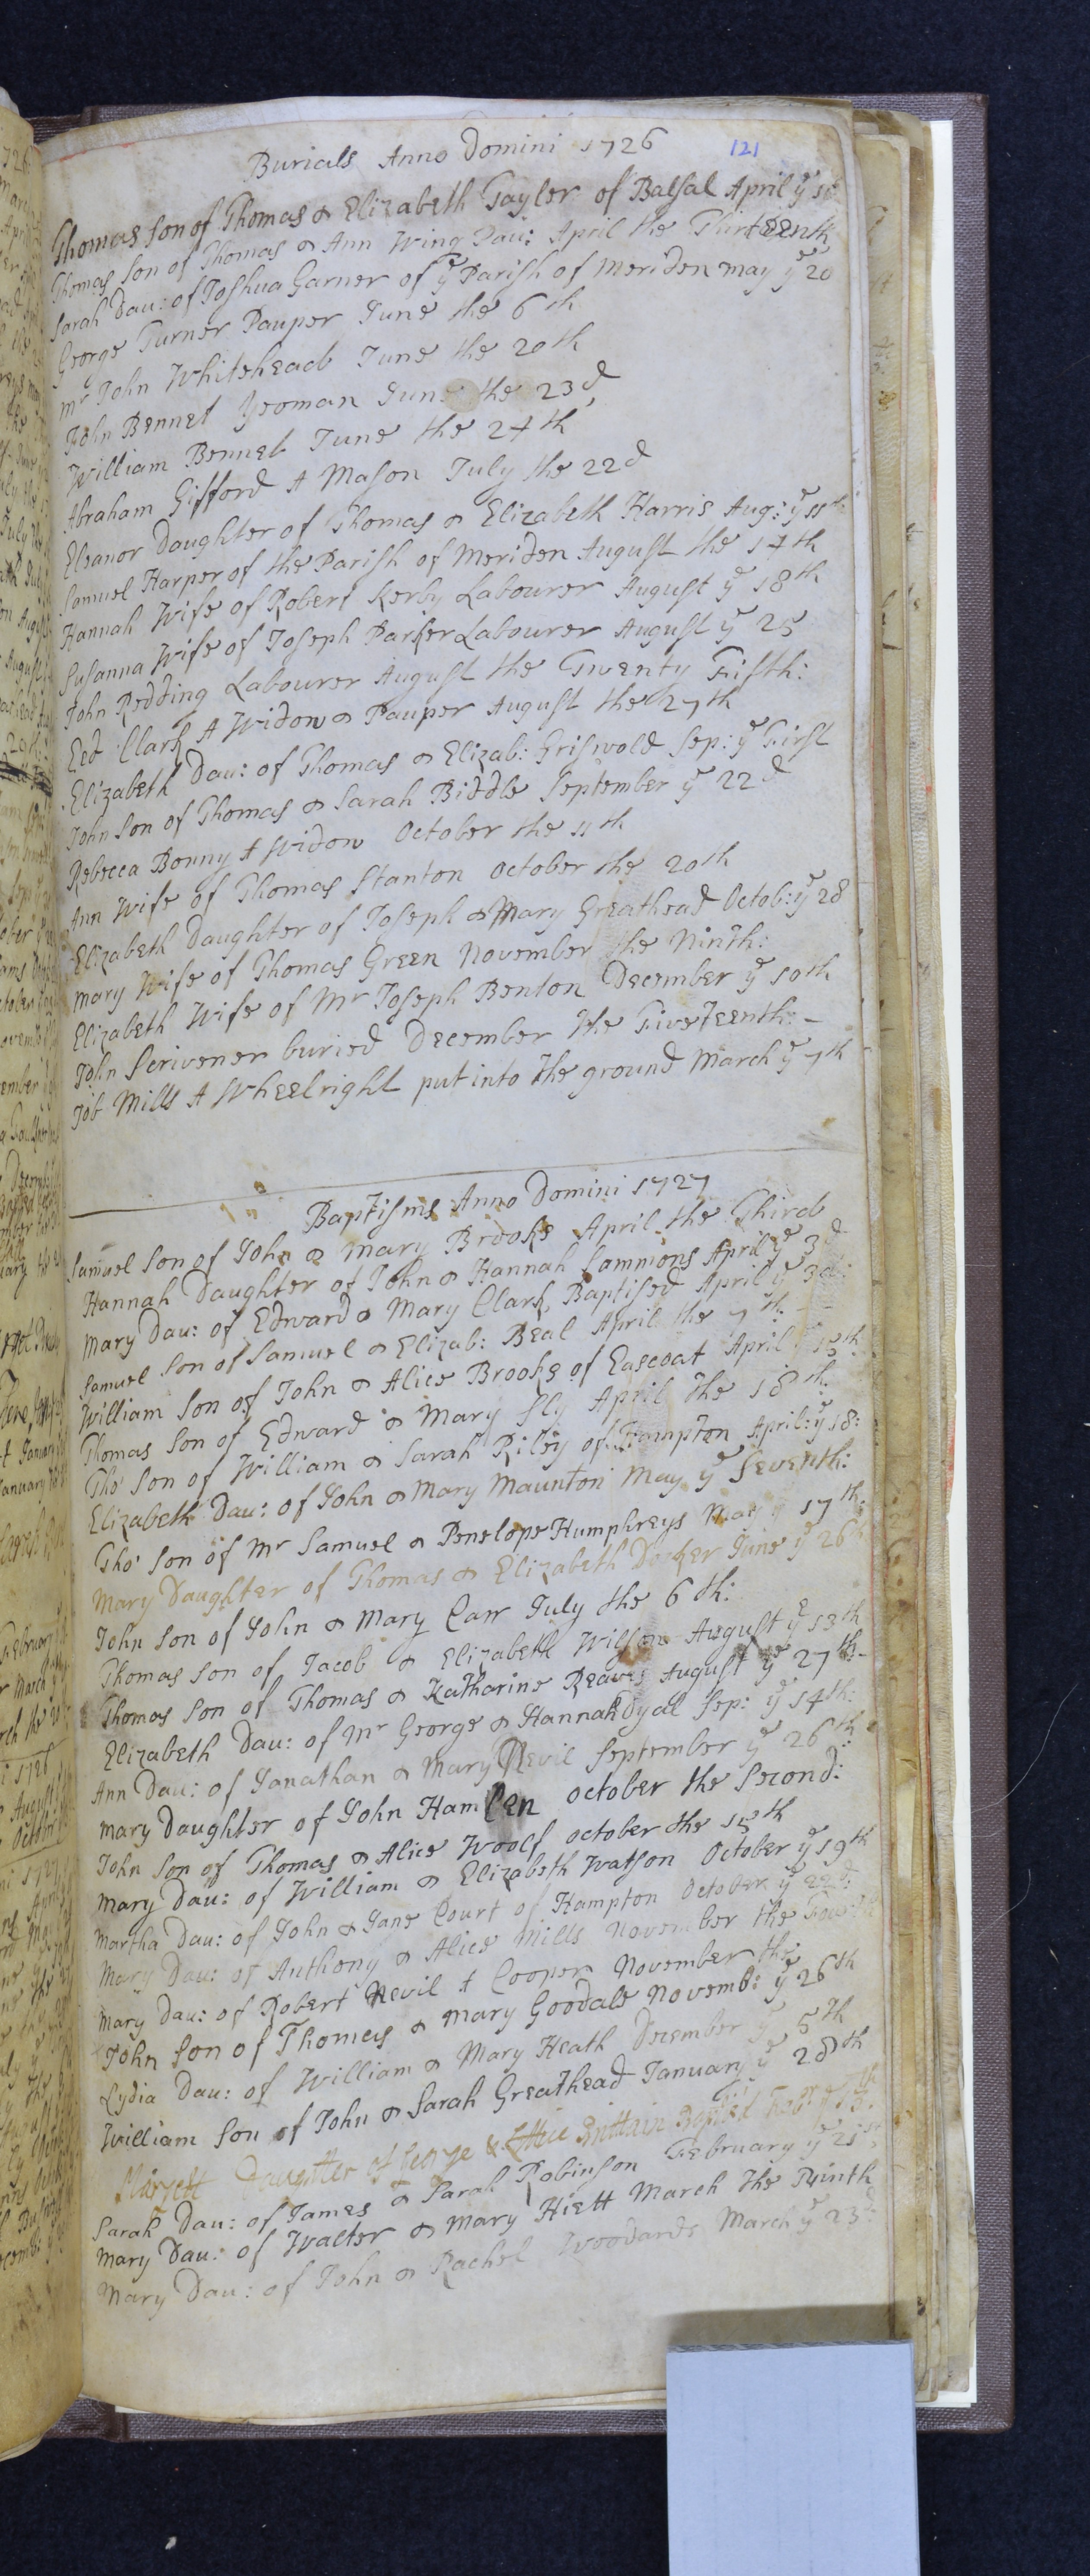 Burials Anno Domini 1726
121
Thomas son of Thomas & Elizabeth Tayler of Balsal April ye 10
Thomas Son of Thomas & Ann Wing Pau: April the Thirteenth
Sarah Dau: of Joshua Garner of ye Parish of Meriden may ye 20
George Turner Pauper June the 6th
Mr John Whitehead June the 20th
John Bennet Yeoman June the 23d
William Bennet June the 24th
Abraham Gifford A Mason July the 22d
Eleanor Daughter of Thomas & Elizabeth Harris Aug: ye 11th
Samuel Harper of the Parish of Meriden August the 14th
Hannah Wife of Robert Kerby Labourer August ye 18th
Susanna Wife of Joseph Parker Labourer August ye 25
John Redding Labourer August the Twenty Fifth:
Clark A Widow & Pauper August the 27th
Elizabeth Dau: of Thomas & Elizab: Griswold Sep: ye First
John Son of Thomas & Sarah Biddle September ye 22d
Rebecca Bonny A Widow October the 11th
Ann Wife of Thomas Stanton October the 20th
Elizabeth Daughter of Joseph & Mary Greathead Octob: ye 28
Mary Wife of Thomas Green November the Ninth:
Elizabeth Wife of Mr Joseph Benton December ye 10th
John Scrivener buried December the Fiveteenth:
Job Mills A Wheelright put into the ground March ye 7th
Baptisms Anno Domini 1727
Samuel Son of John & Mary Brooke April the Third
Hannah Daughter of John & Hannah Sammons April ye 3d
Mary Dau: of Edward & Mary Clark Baptised April ye 3d:
Samuel Son of Samuel & Elizab: Beal April the 7th
William Son of John & Alice Brooke of Eascoat April ye 15th
Thomas Son of Edward & Mary Sly April the 18th
Tho' Son of William & Sarah Riley of Hampton April: ye 18:
Elizabeth Dau: of John & Mary Maunton May ye Seventh:
Tho' Son of Mr Samuel & Penelope Humphreys May ye 17th:
Mary Daughter of Thomas & Elizabeth Docker June ye 26
John Son of John & Mary Carr July the 6th:
Thomas Son of Jacob & Elizabeth Wilson August ye 13th
Thomas Son of Thomas & Katharine Reaves August ye 27th
Elizabeth Dau: of Mr George & Hannah Dyal Sep: ye 14th:
Ann Dau: of Jonathan & Mary Nevil September ye 26th:
Mary Daughter of John Hamlen October the Second:
John Son of Thomas & Alice Woolf October the 15th
Mary Dau: of William & Elizabeth Watson October ye 19th
Martha Dau: of John & Jane Court of Hampton October ye 22d:
Mary Dau: of Anthony & Alice Mills November the
Mary Dau: of Robert Nevil A Cooper November the:
John Son of Thomas & Mary Goodale Novemb: ye 26th
Lydia Dau: of William & Mary Heath December ye 5th
William Son of John & Sarah Greathead January ye 28th
Daughter of George & Brittain Baptised
Sarah Dau: of James & Sarah Robinson February ye 21st
Mary Dau: of Walter & Mary Hiett March the Ninth
Mary Dau: of John & Rachel Woodards March ye 23d